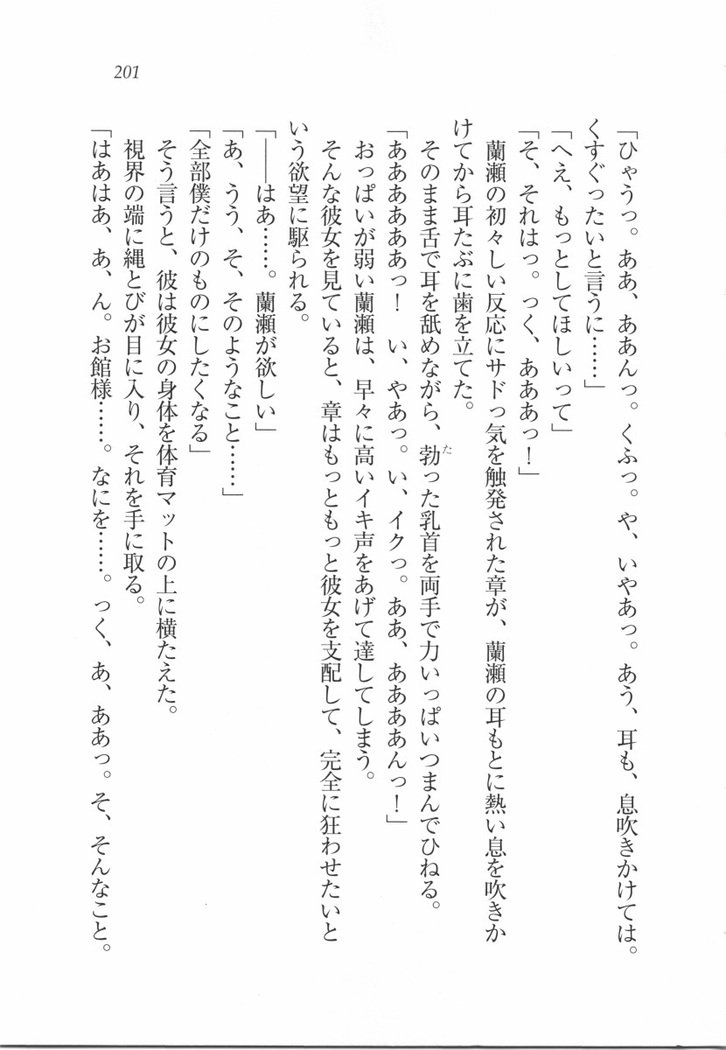 201
「ひゃうっ。ああ、ああんっ。くふっ。や、いやあっ。あう、耳も、息吹きかけては。
くすぐったいと言うに……」
「へえ、もっとしてほしいって」
「そ、それはっ。っく、あああっ！」
蘭瀬の初々しい反応にサドっ気を触発された章が、蘭瀬の耳もとに熱い息を吹きか
けてから耳たぶに歯を立てた。
そのまま舌で耳を舐めながら、勃った乳首を両手で力いっぱいつまんでひねる。
た
「ああああああっ！　い、やあっ。い、イクっ。ああ、ああああんっ！」
おっぱいが弱い蘭瀬は、早々に高いイキ声をあげて達してしまう。
そんな彼女を見ていると、章はもっともっと彼女を支配して、完全に狂わせたいと
いう欲望に駆られる。
「――はあ……。蘭瀬が欲しい」
「あ、うう、そ、そのようなこと……」
「全部僕だけのものにしたくなる」
そう言うと、彼は彼女の身体を体育マットの上に横たえた。
視界の端に縄とびが目に入り、それを手に取る。
「はあはあ、あ、ん。お館様……。なにを……。っく、あ、ああっ。そ、そんなこと。